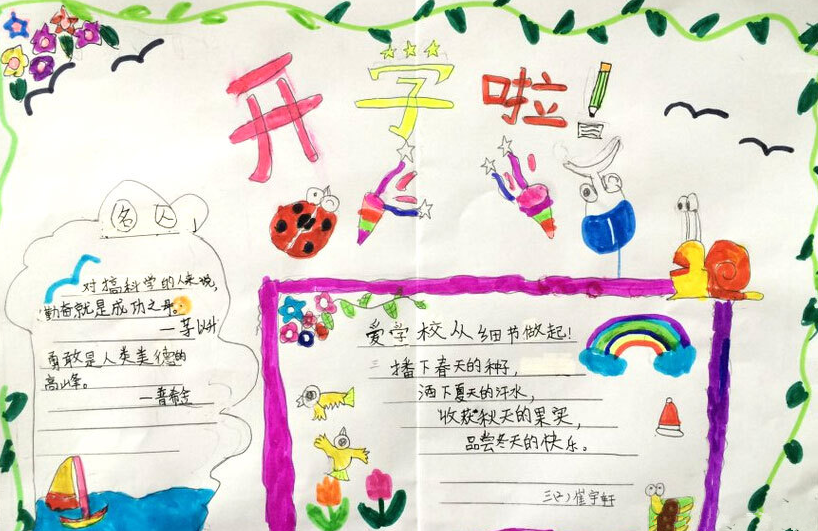 开学啦
名人
对搞科学的人来说，
勤奋就是成功之母。
—茅以升
勇敢是人类美德的
高峰。
—普希金
爱学校从细节做起！
播下春天的种子，
洒下夏天的汗水，
收获秋天的果实，
品尝冬天的快乐。
三(二)崔宇轩